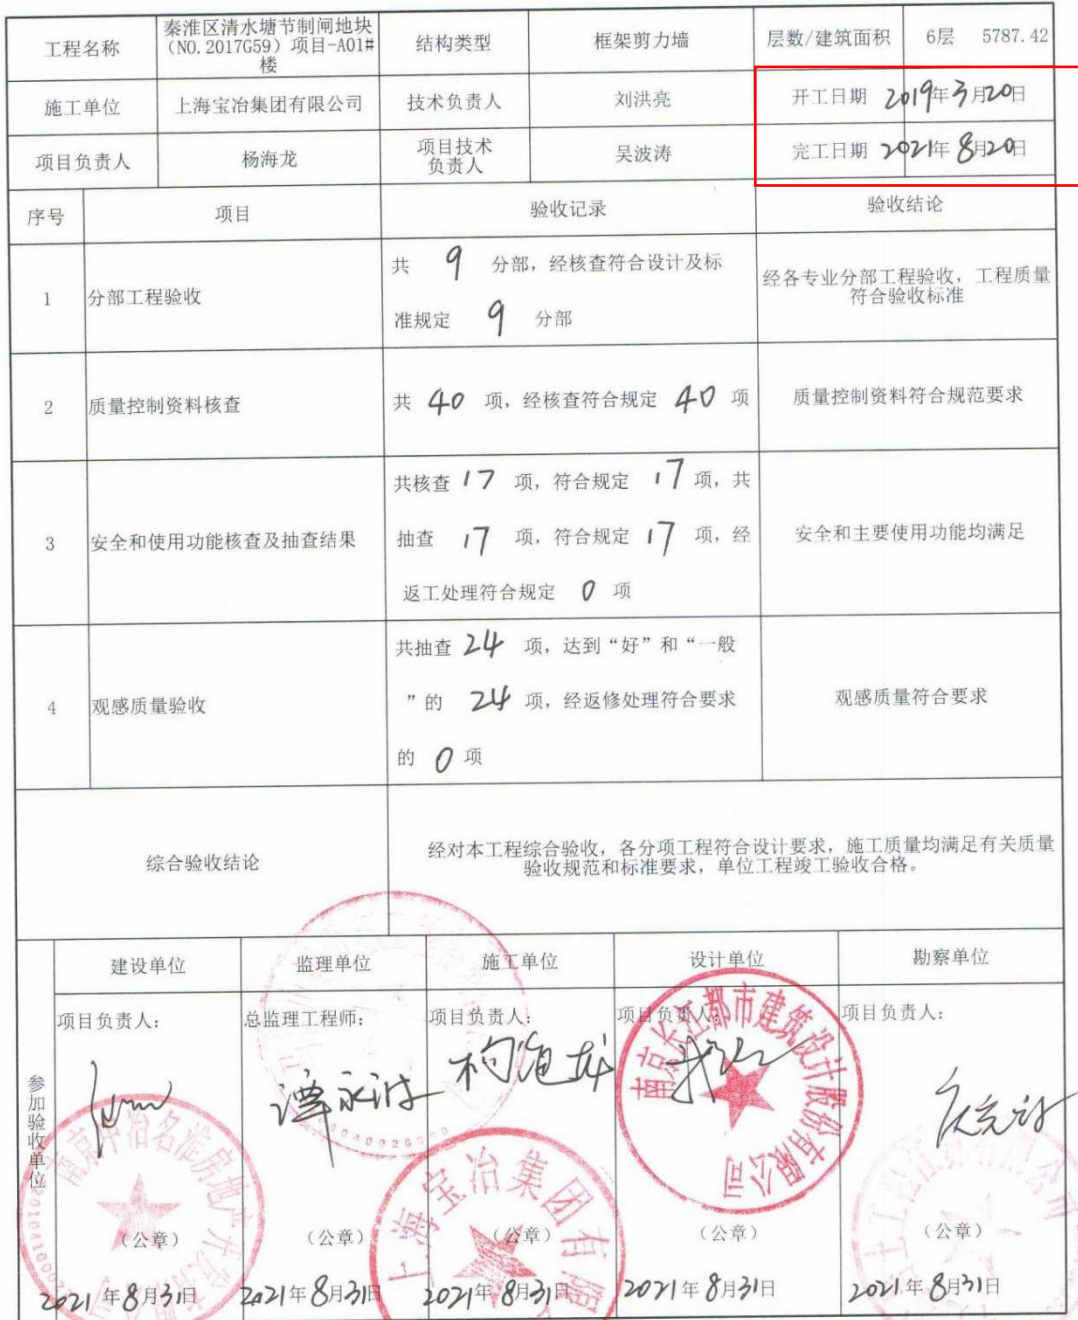 工程名称
秦淮区清水塘节制闸地块
(NO.2017G59)项目-A01#
楼
结构类型
框架剪力墙
层数/建筑面积
6层 5787.42
施工单位
上海宝冶集团有限公司
技术负责人
刘洪亮
开工日期 2019年3月20日
项目负责人
杨海龙
项目技术
负责人
吴波涛
完工日期 2021年8月20日
序号
项目
验收记录
验收结论
1
分部工程验收
共 9 分部,经核查符合设计及标
准规定 9 分部
经各专业分部工程验收,工程质量
符合验收标准
2
质量控制资料核查
共 40 项,经核查符合规定 40 项
质量控制资料符合规范要求
3
安全和使用功能核查及抽查结果
共核查 17 项,符合规定 17 项,共
抽查 17 项,符合规定 17 项,经
返工处理符合规定 0 项
安全和主要使用功能均满足
4
观感质量验收
共抽查 24 项,达到“好”和“一般
”的 24 项,经返修处理符合要求
的 0 项
观感质量符合要求
综合验收结论
经对本工程综合验收,各分项工程符合设计要求,施工质量均满足有关质量
验收规范和标准要求,单位工程竣工验收合格。
参加验收单位
建设单位
监理单位
施工单位
设计单位
勘察单位
项目负责人:
总监理工程师:
项目负责人:
项目负责人:
项目负责人:
南京长江都市建筑设计股份有限公司
上海宝冶集团有限
(公章)
(公章)
(公章)
(公章)
(公章)
2021年8月31日
2021年8月31日
2021年8月31日
2021年8月31日
2021年8月31日